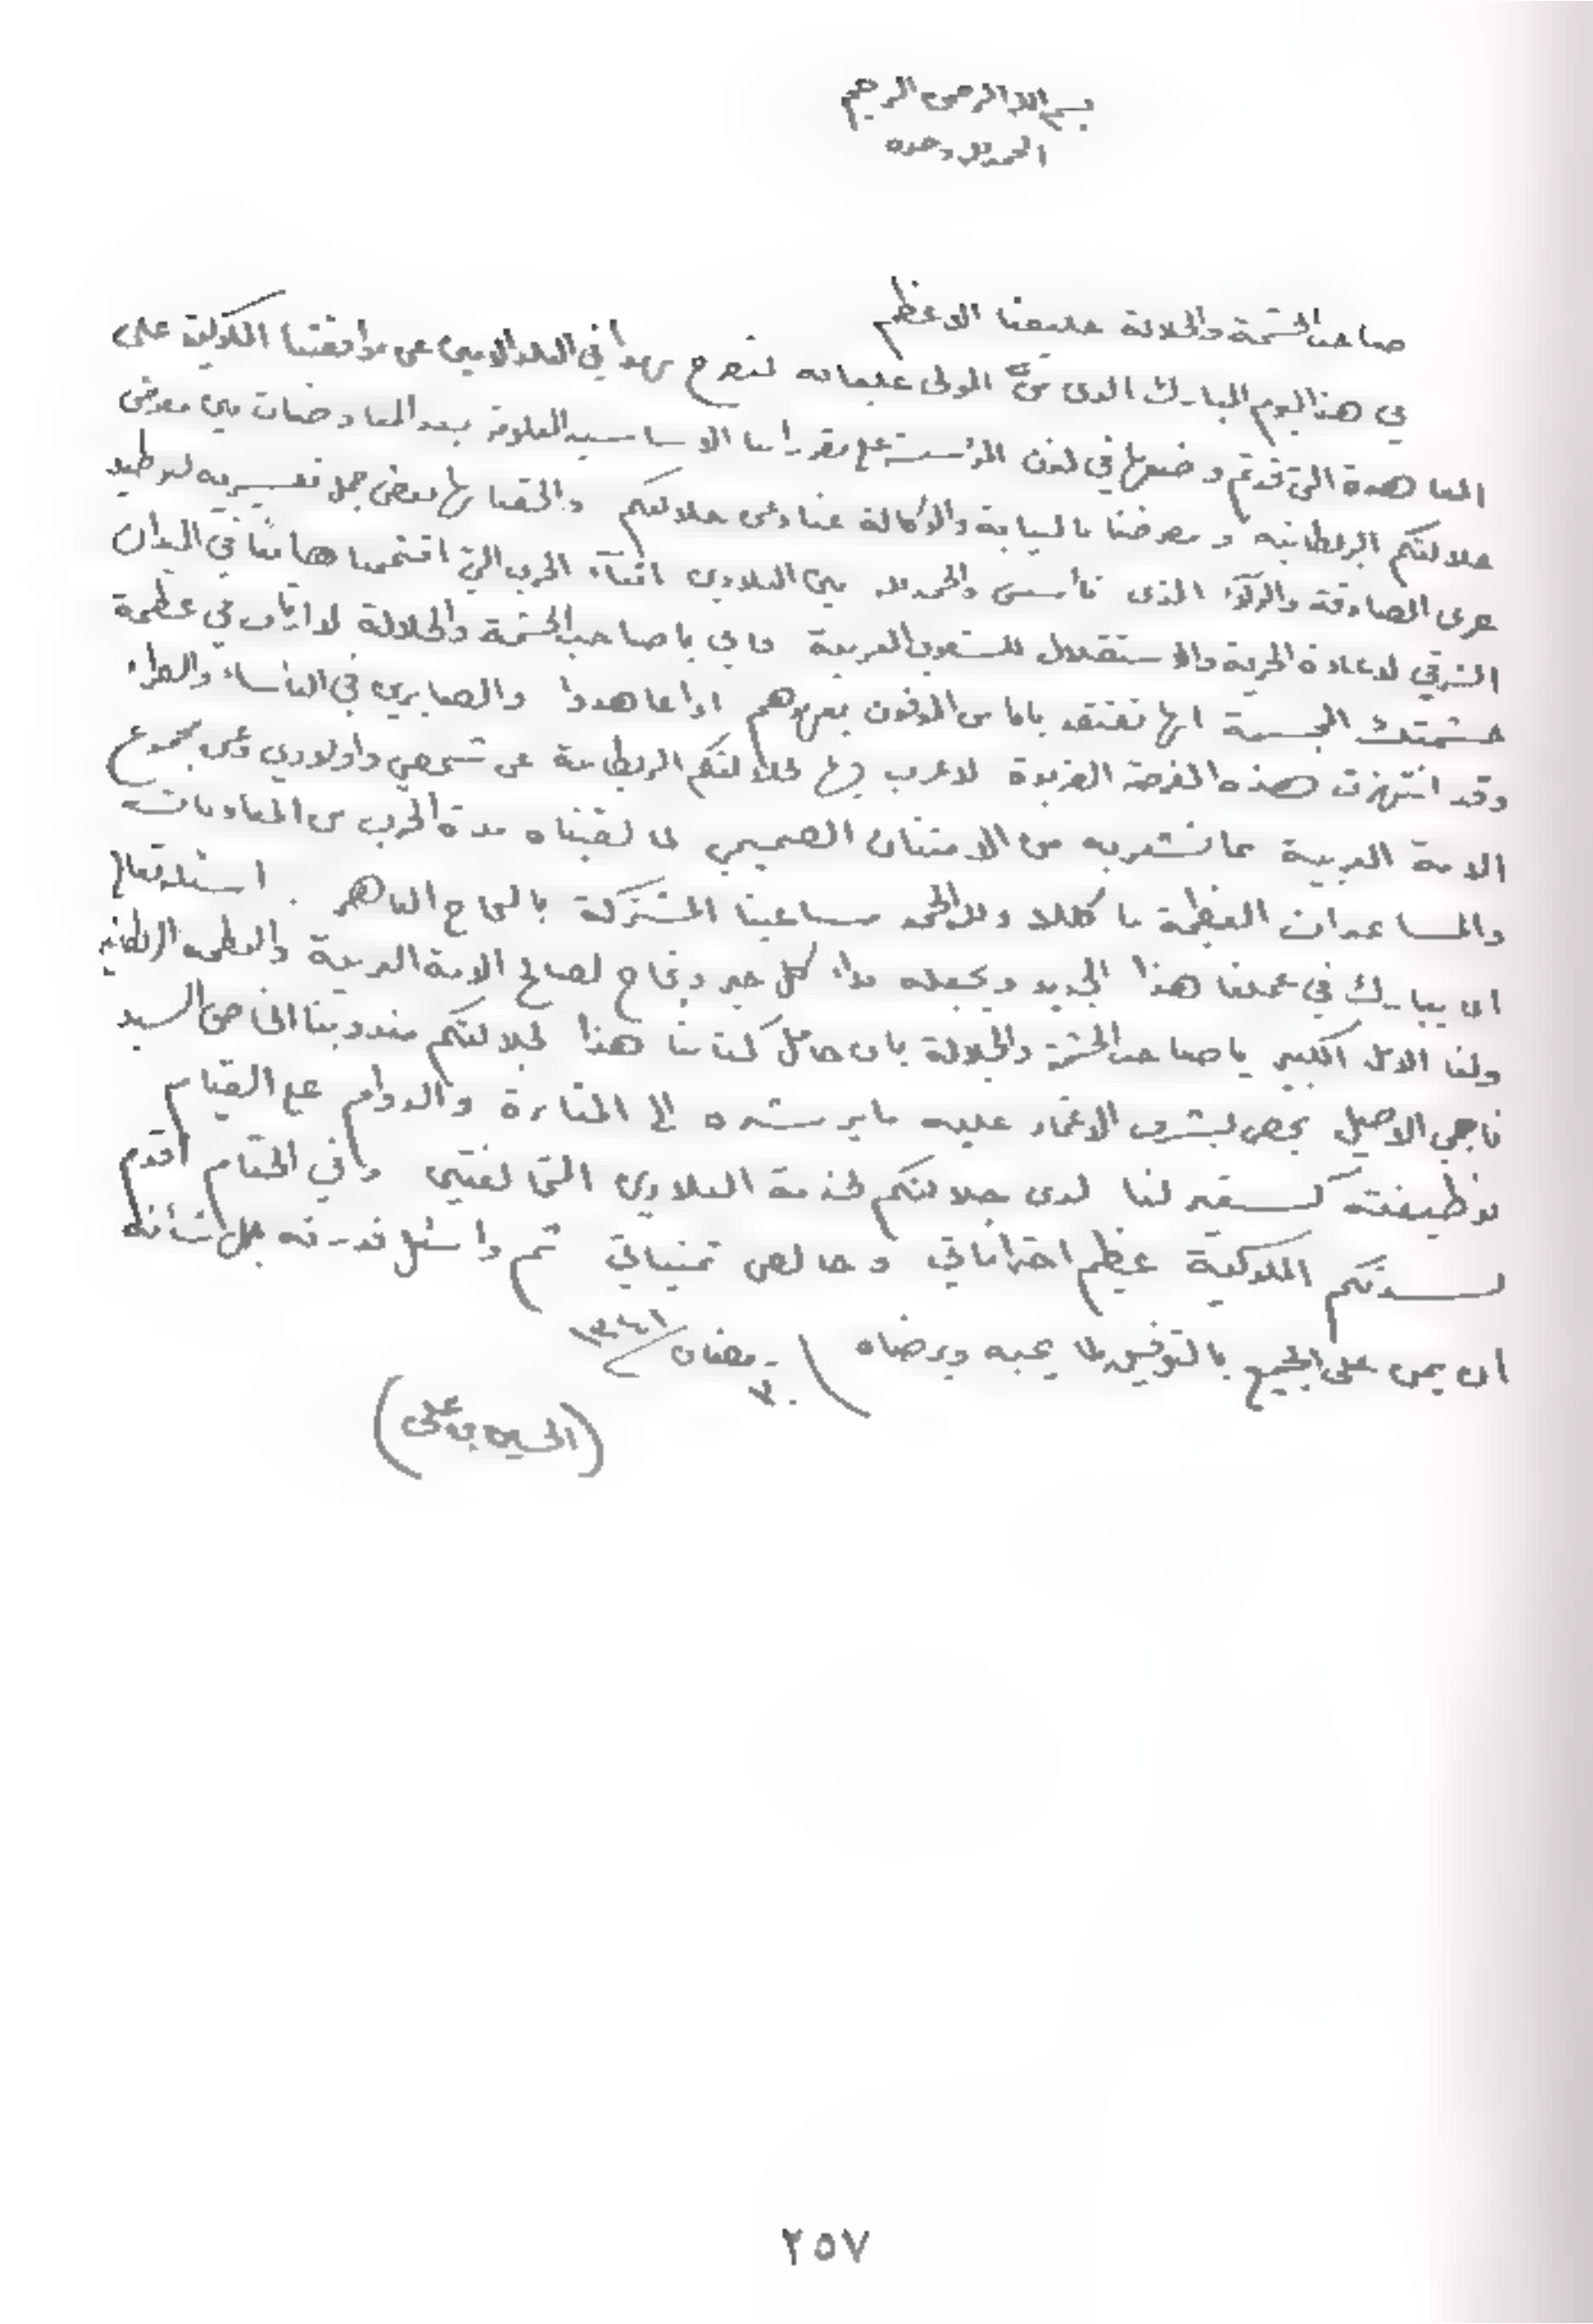 بسم الله الرحمن الرحيم
الحمد لله وحده
صاحب الحشمة والجلالة حليفنا الاعظم
في هذا اليوم المبارك الذي منّ المولى على عباده لنصرح بهذا في البلد الامين عن موافقتنا الملوكية على
المعاهدة التي قد تم وضعها في لندن المؤسسة على مقرراتنا الاساسية المعلومة بعد المفاوضات بين معرض
جلالتكم البريطانيه ومعرضنا بالنيابة والوكالة عنا وعن جلالتكم والحقنا بها بعض جمل تفسيريه لتوطيد
عرى الصداقة والولاء الذي تأسس والحمد لله بين البلادين اثناء الحرب التي اقتحمناها معًا في الميدان
الشرقي لاعادة الحرية والاستقلال للشعوب العربية واني يا صاحب الحشمة والجلالة لا ارتاب في عظمة
حشمتك الجسيمة انها تعتقد باننا من الموفون بعهدهم اذا عاهدوا والصابرين في البأساء والضراء
وقد انتهزت هذه الفرصة الفريدة لاعرب بها لجلالتكم البريطانية عن شخصي واولادي وعن مجموع
الامة العربية عما نشعر به من الامتنان الصميمي لما لقيناه مدة الحرب من المعاونات
والمساعدات العظيمة ما كللت ولله الحمد مساعينا المشتركة بالنجاح الباهر . اسئله تعالى
ان يبارك في عملنا هذا الجديد ويجعله مبدأ كل خير ونجاح لصالح الامة العربية والعظمه البريطانيه
ولنا الامل الكبير يا صاحب الحشمة والجلالة بان حامل كتابنا هذا لجلالتكم مندوبنا الخاص السيد
ناجي الاصيل يحصل بشرف الاعتماد عليه ما يرشده الى المثابرة والدوام على القيام
بوظيفته كسفير لنا لدى جلالتكم لخدمة البلادين التي لفئتين وفي الختام اقدم
لسدتكم الملوكية عظيم احتراماتي وخالص تمنياتي ثم واسئل قدرته جل شأنه
ان يمن على الجميع بالتوفيق لما يحبه ويرضاه ٣٠ رمضان ١٣٤١
(الحسين بن علي)
٢٥٧